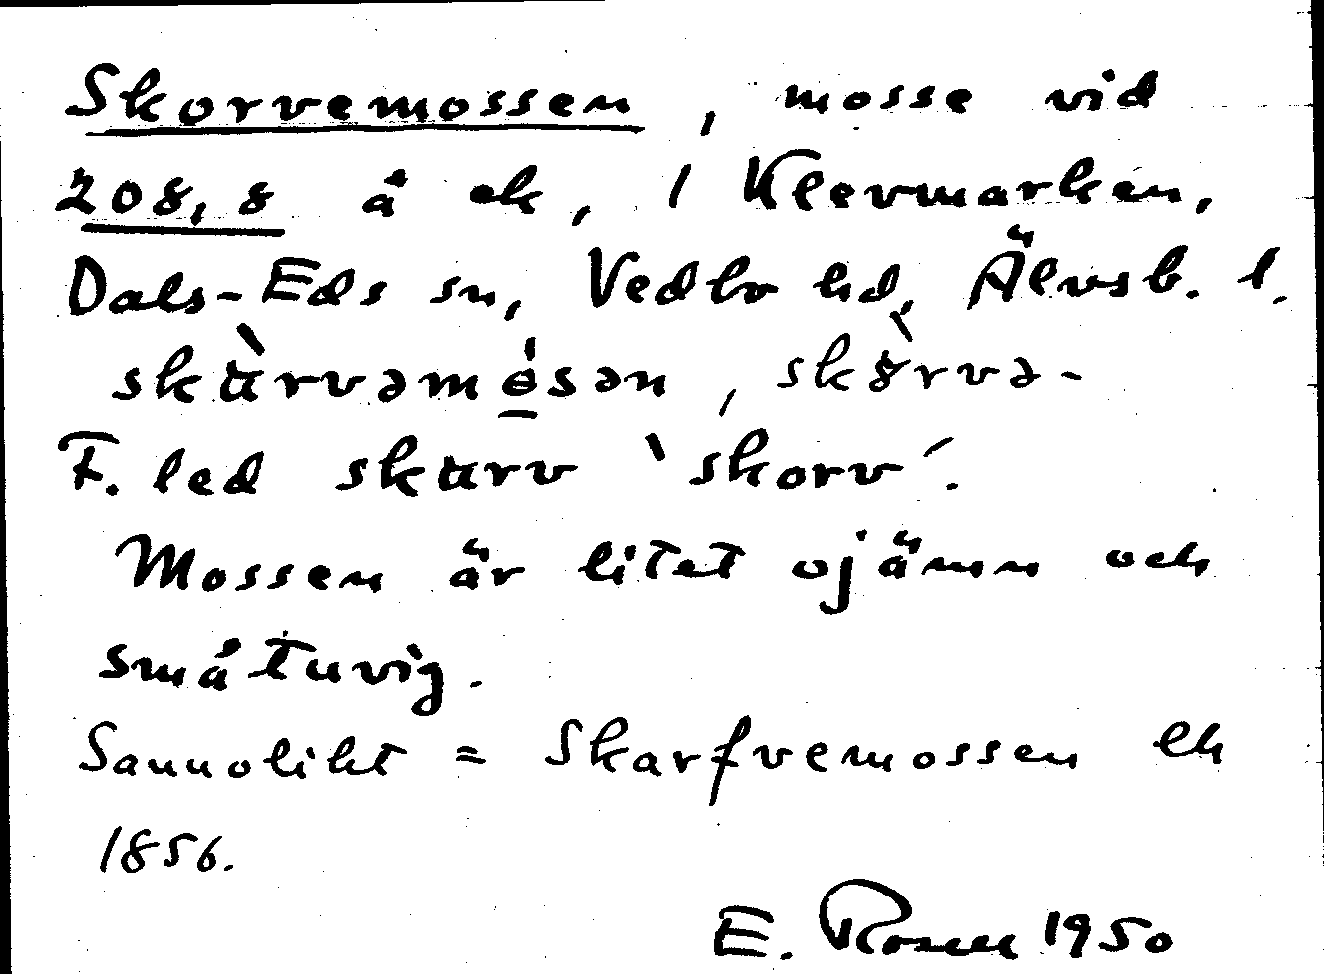 Skorvemossen, mosse vid
208,8 å ek, i Klevmarken,
Dals-Eds sn, Vedbo hd, Älvsb. l.
skàrvəmɵ́sən, skɤ̀rvə-
F. led skarv `skorv´.
Mossen är litet ojämn och
småtuvig.
Sannolikt = Skarfvemossen ek
1856.
E. Rosell 1950